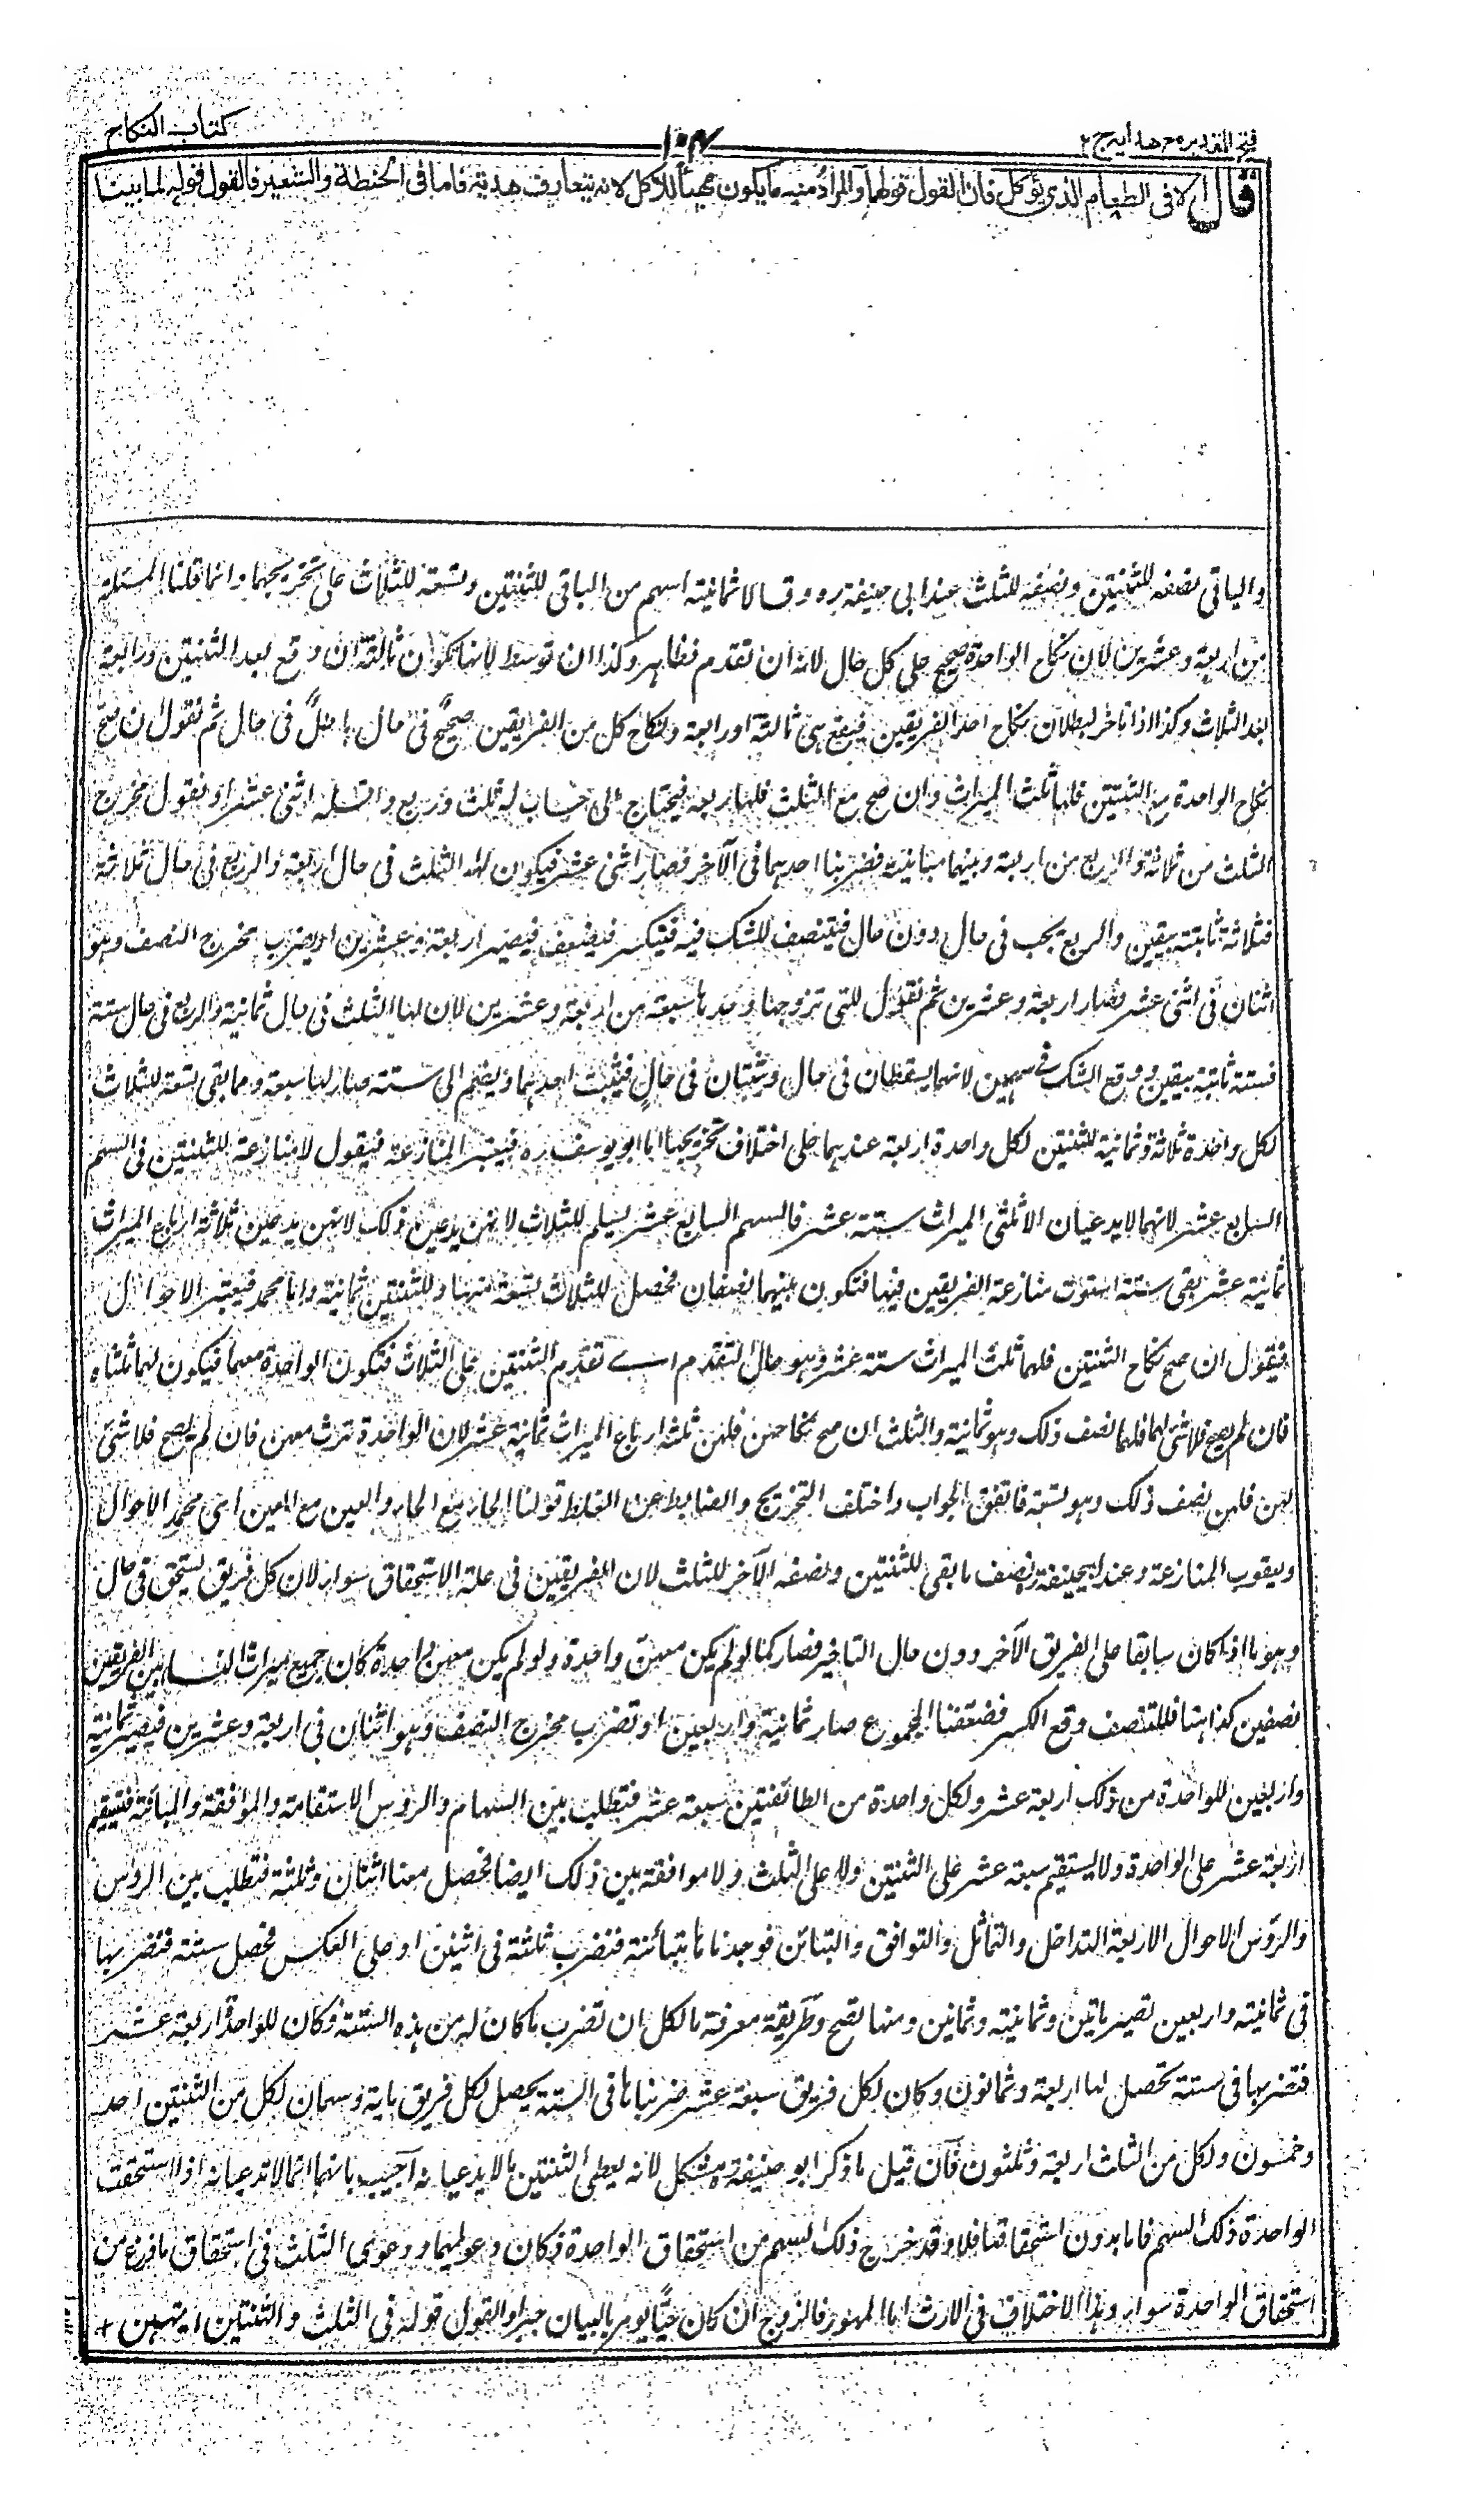 فتح القدیر مع ھدایہ ج ۲
۱۰۴۷
کتاب النکاح
قال الا فی الطعام الذی یؤکل فان القول قولها والمراد منه ما یکون مهیئاً للاکل لانه یتعارف هدیة فاما فی الحنطة والشعیر فالقول قوله لما بینا
والباقی نصفه للثنتین ونصفه للثلث عند ابی حنیفة ره وقالا ثمانیة اسهم من الباقی للثنتین وتسعة للثلاث علی تخریجهما وانما قلنا المسئلة
من اربعة وعشرین لان نکاح الواحدة صحیح علی کل حال لانه ان تقدم فظاهر وکذا ان توسط لانها تکون ثالثة ان وقع بعد الثنتین ورابعة
بعد الثلاث وکذا اذا تاخر لبطلان نکاح احد الفریقین فیقع هی ثالثة او رابعة ونکاح کل من الفریقین صحیح فی حال باطل فی حال ثم نقول ان صح
نکاح الواحدة مع الثنتین فلها ثلث المیراث وان صح مع الثلث فلها ربعه فیحتاج الی حساب له ثلث وربع واقله اثنی عشر او نقول مخرج
الثلث من ثلاثة والربع من اربعة وبینهما مباینة فضربنا احدهما فی الآخر فصار اثنی عشر فیکون لها الثلث فی حال اربعة والربع فی حال ثلاثة
فثلاثة ثابتة بیقین والربع یجب فی حال دون حال فیتنصف للشک فیه فیتکسر فیضعف فیصیر اربعة وعشرین او یضرب مخرج النصف وهو
اثنان فی اثنی عشر فصار اربعة وعشرین ثم نقول للتی تزوجها وحدها سبعة من اربعة وعشرین لان لها الثلث فی حال ثمانیة والربع فی حال ستة
فستة ثابتة بیقین ووقع الشک فی سهمین لانهما یسقطان فی حال ویثبتان فی حال فیثبت احدهما ویضم الی ستة صار لها سبعة وما بقی تسعة للثلاث
لکل واحدة ثلاثة وثمانیة للثنتین لکل واحدة اربعة عندهما علی اختلاف تخریجهما اما ابو یوسف ره فیعتبر المنازعة فیقول لا منازعة للثنتین فی السهم
السابع عشر لانهما لا یدعیان الا ثلثی المیراث ستة عشر فالسهم السابع عشر یسلم للثلاث لانهن یدعین ذلک لانهن یدعین ثلاثة ارباع المیراث
ثمانیة عشر بقی ستة عشر استوت منازعة الفریقین فیها فتکون بینهما نصفان فحصل للثلاث تسعة منها وللثنتین ثمانیة واما محمد فیعتبر الاحوال
فیقول ان صح نکاح الثنتین فلهما ثلث المیراث ستة عشر وهو حال التقدم اے تقدم الثنتین علی الثلاث فتکون الواحدة معهما فیکون لهما ثلثاه
فان لم یصح فلا شئ لهما فلهما نصف ذلک وهو ثمانیة والثلث ان صح نکاحهن فلهن ثلثة ارباع المیراث ثمانیة عشر لان الواحدة ترث معهن فان لم یصح فلا شئ
لهن فلهن نصف ذلک وهو تسعة فاتفق الجواب واختلف التخریج والضابط عن الغلط قولنا الحاء مع الحاء والعین مع العین ای محمد الاحوال
ویعقوب المنازعة وعند ابیحنیفة نصف ما بقی للثنتین ونصفه الآخر للثلث لان الفریقین فی علة الاستحقاق سواء لان کل فریق یستحق فی حال
وهو ما اذا کان سابقا علی الفریق الآخر دون حال التاخیر فصار کما لو لم یکن معهن واحدة ولو لم یکن معهن واحدة کان جمیع میراث النساء بین الفریقین
نصفین کذا هنا فللتنصف وقع الکسر فضعفنا المجموع صار ثمانیة واربعین او تضرب مخرج النصف وهو اثنان فی اربعة وعشرین فیصیر ثمانیة
واربعین للواحدة من ذلک اربعة عشر ولکل واحدة من الطائفتین سبعة عشر فتطلب بین السهام والرؤس الاستقامة والموافقة والمباینة فیستقیم
اربعة عشر علی الواحدة ولا یستقیم سبعة عشر علی الثنتین ولا علی الثلث ولا موافقة بین ذلک ایضا فحصل معنا اثنان وثلثة فتطلب بین الرؤس
والرؤس الاحوال الاربعة التداخل والتماثل والتوافق والتباین فوجدناها متباینة فتضرب ثلثة فی اثنین او علی العکس فحصل ستة فتضربها
فی ثمانیة واربعین تصیر ماتین وثمانیة وثمانین ومنها تصح وطریقة معرفة ما لکل ان تضرب ما کان له من هذه الستة وکان للواحدة اربعة عشر
فتضربها فی ستة تحصل لها اربعة وثمانون وکان لکل فریق سبعة عشر ضربناها فی الستة یحصل لکل فریق مایة وسهمان لکل من الثنتین احد
وخمسون ولکل من الثلث اربعة وثلثون فان قیل ما ذکر ابو حنیفة ره مشکل لانه یعطی الثنتین ما لا یدعیانه اجیب بانهما انما لا تدعیانه اذا استحقت
الواحدة ذلک السهم فاما بدون استحقاقها فلا وقد خرج ذلک السهم من استحقاق الواحدة فکان دعواهما ودعوی الثلث فی استحقاق ما فرغ من
استحقاق الواحدة سواء وهذا الاختلاف فی الارث اما المهور فالزوج ان کان حیًّا یومر بالبیان جبرا والقول قوله فی الثلث والثنتین ایتهن +